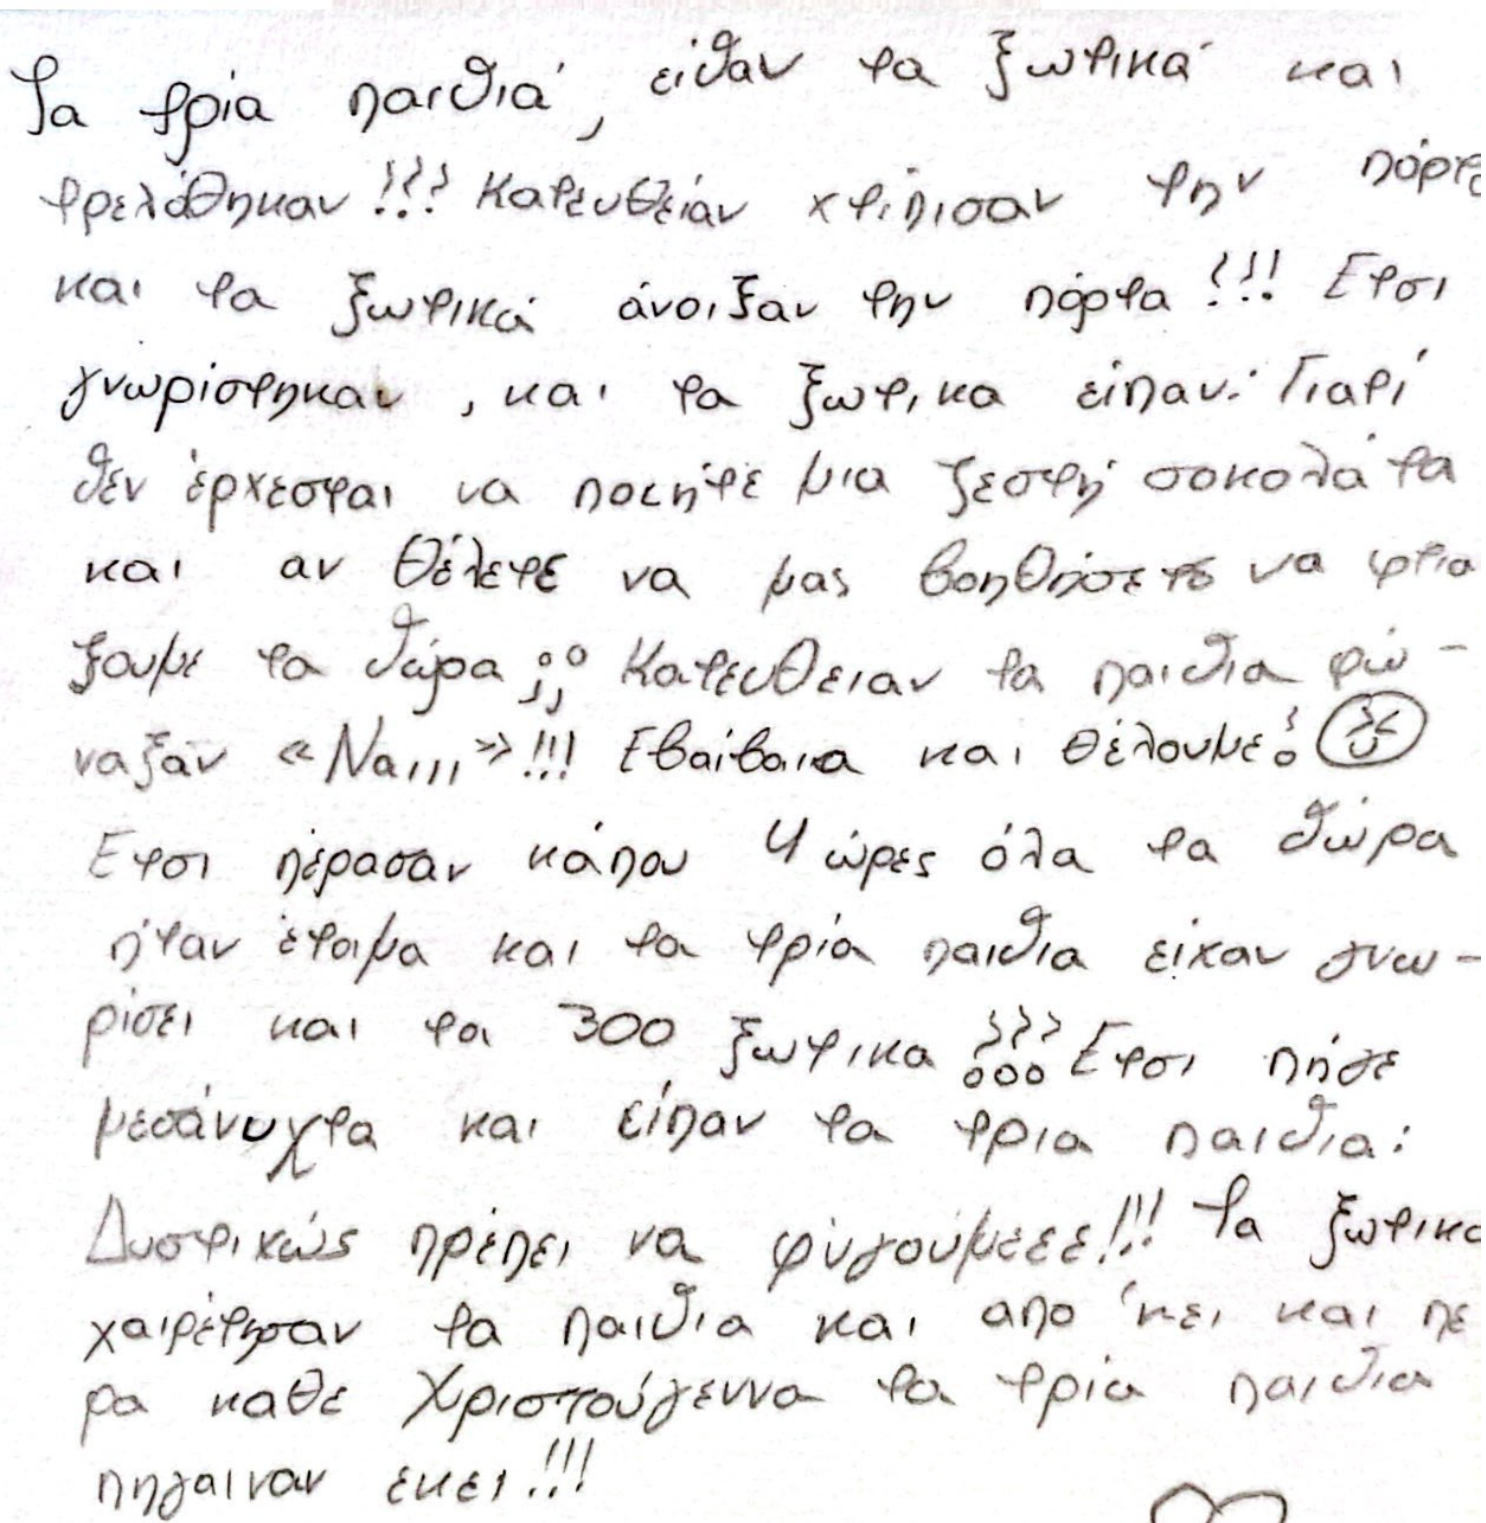 Τα τρία παιδιά, είδαν τα ξωτικά και
τρελάθηκαν!!! Κατευθείαν χτίπισαν την πόρτα
και τα ξωτικά άνοιξαν την πόρτα!!! Ετσι
γνωρίστηκαν, και τα ξωτικα είπαν: Γιατί
δεν έρχεσται να ποιήτε μια ζεστή σοκολάτα
και αν θέλετε να μας βοηθήσετε να φτια
ξουμε τα δώρα;; Κατευθειαν τα παιδια φώ-
ναξαν «Ναιιι»!!! Εβαίβαια και θέλουμε!
Ετσι πέρασαν κάπου 4 ώρες όλα τα δώρα
ήταν έτοιμα και τα τρία παιδια είχαν γνω-
ρίσει και τα 300 ξωτικα!!! Ετσι πήγε
μεσάνυχτα και είπαν τα τρια παιδια:
Δυστιχώς πρέπει να φύγούμεεε!!! Τα ξωτικα
χαιρέτησαν τα παιδια και απο 'κει και πε
ρα καθε Χριστούγεννα τα τρία παιδια
πηγαιναν εκει!!!